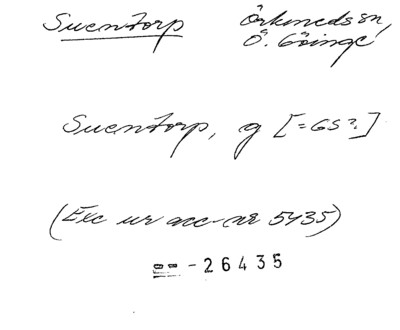 Sventorp Örkeneds sn,
Ö. Göinge
Sventorp, g [=GS?]
(Exc ur acc-nr 5435)
-26435